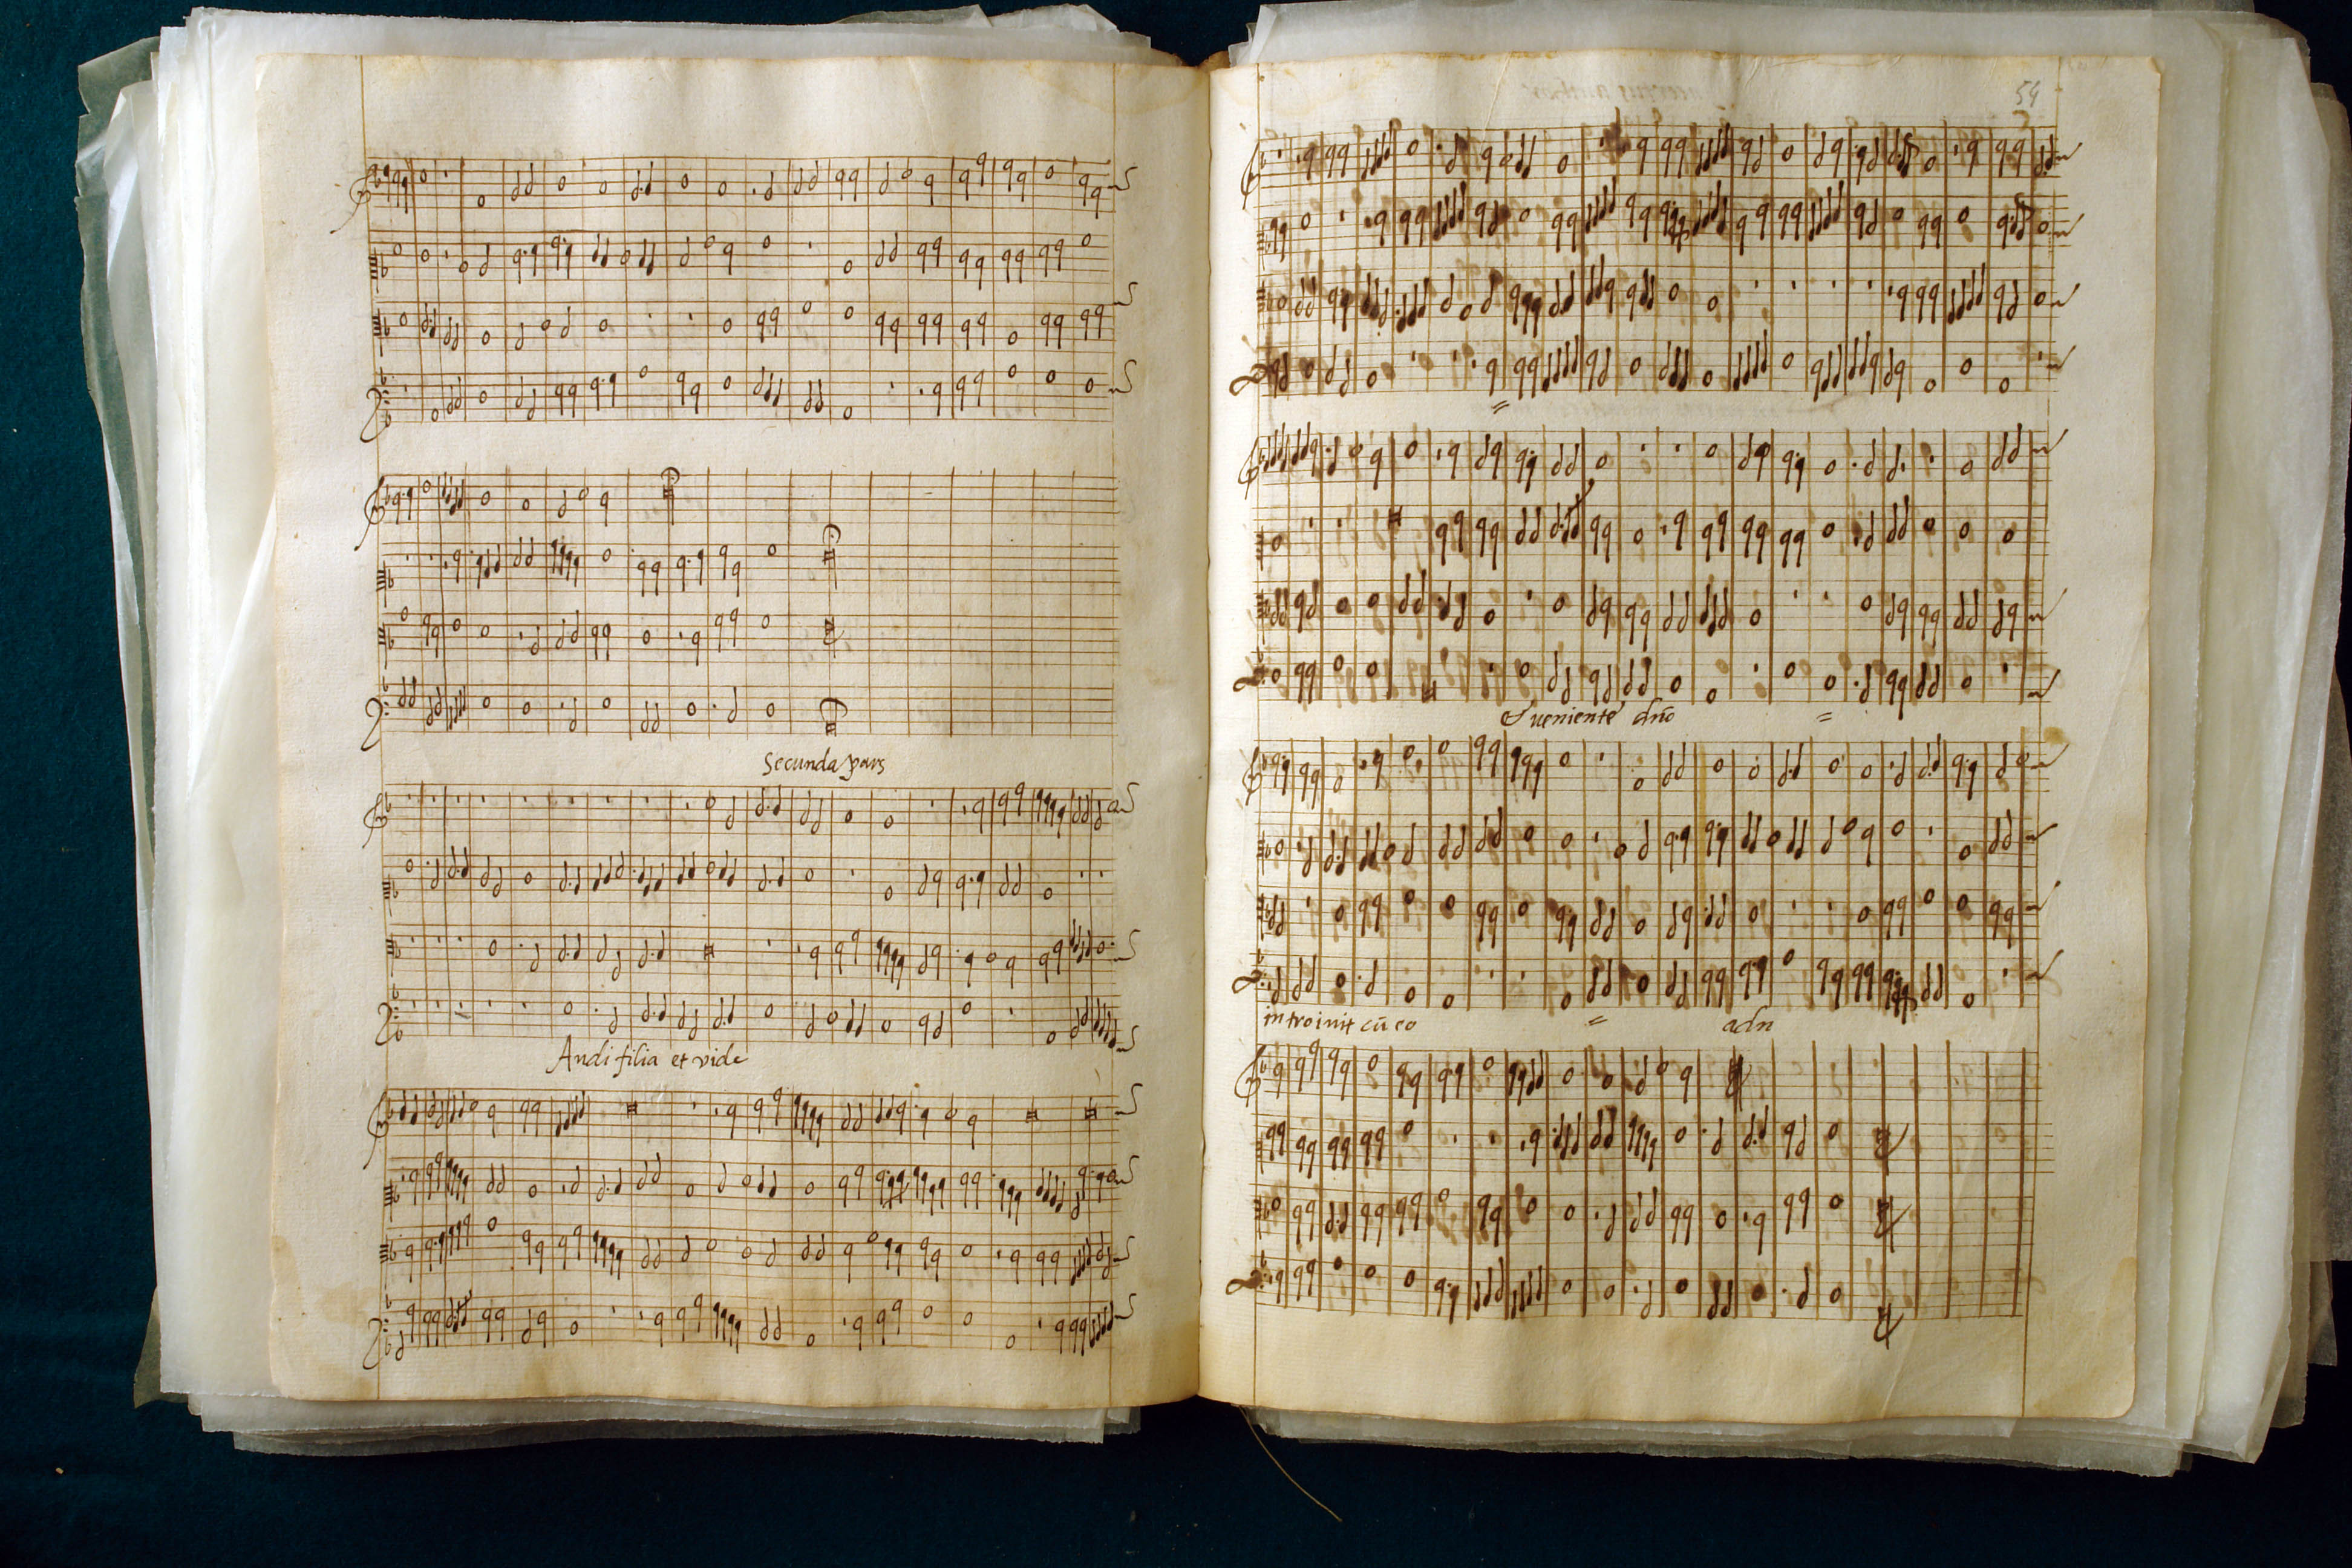 Secunda pars
Audi filia et vide
54
=
Et veniente dn̄o =
introivit cū eo = adn